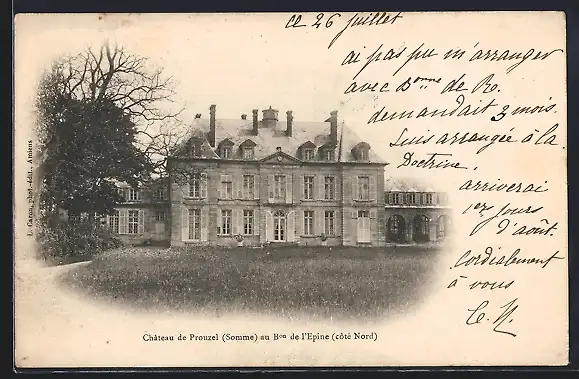 ce 26 juillet
ai pas pu m'arranger
avec Bonne de Ro.
demandait 3 mois.
Suis arrangée à la
Doctrine.
arriverai
1ers jours
d'août.
Cordialement
à vous
C. H.
L. Caron, phot.-édit., Amiens
Château de Prouzel (Somme) au Bon de l'Epine (côté Nord)